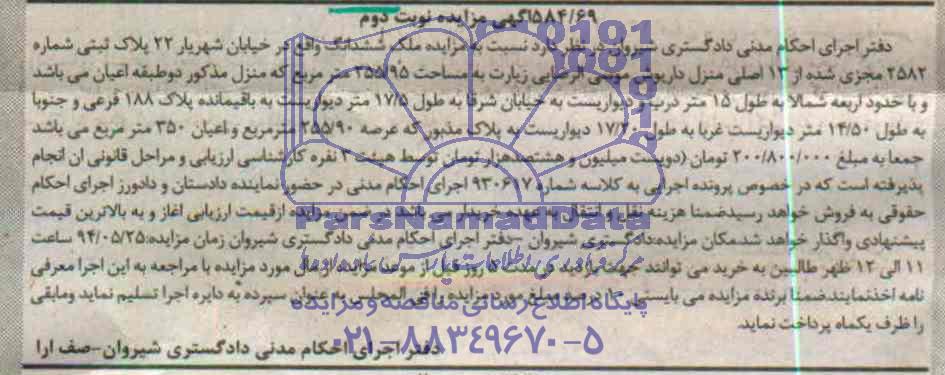 ۵۸۴/۶۹آگهی مزایده نوبت دوم
دفتر اجرای احکام مدنی دادگستری شیروان در نظر دارد نسبت به مزایده ملک ششدانگ واقع در خیابان شهریار ۲۲ پلاک ثبتی شماره
۲۵۸۲ مجزی شده از ۱۳ اصلی منزل داریوش موسی الرضایی زیارت به مساحت ۲۵۵/۹۵ متر مربع که منزل مذکور دوطبقه اعیان می باشد
و با حدود اربعه شمالا به طول ۱۵ متر درب و دیواریست به خیابان شرقا به طول ۱۷/۵ متر دیواریست به باقیمانده پلاک ۱۸۸ فرعی و جنوبا
به طول ۱۴/۵۰ متر دیواریست غربا به طول ۱۷/۲۰ دیواریست به پلاک مذبور که عرصه ۲۵۵/۹۰ مترمربع و اعیان ۳۵۰ متر مربع می باشد
جمعا به مبلغ ۲۰۰/۸۰۰/۰۰۰ تومان (دویست میلیون و هشتصدهزار تومان توسط هیئت ۳ نفره کارشناسی ارزیابی و مراحل قانونی ان انجام
پذیرفته است که در خصوص پرونده اجرایی به کلاسه شماره ۹۳۰۶۱۷ اجرای احکام مدنی در حضور نماینده دادستان و دادورز اجرای احکام
حقوقی به فروش خواهد رسیدضمنا هزینه نقل و انتقال به عهده خریدار می باشد در ضمن مزایده ازقیمت ارزیابی اغاز و به بالاترین قیمت
پیشنهادی واگذار خواهد شدمکان مزایده:دادگستری شیروان -دفتر اجرای احکام مدنی دادگستری شیروان زمان مزایده:۹۴/۰۵/۲۵ ساعت
۱۱ الی ۱۲ ظهر طالبین به خرید می توانند جهت بازدید در مدت ۵ روز قبل از موعد مزایده از مال مورد مزایده با مراجعه به این اجرا معرفی
نامه اخذنمایندضمنا برنده مزایده می بایستی ۱۰ درصد مبلغ مورد مزایده را فی المجلس به عنوان سپرده به دایره اجرا تسلیم نماید ومابقی
را ظرف یکماه پرداخت نماید.
دفتر اجرای احکام مدنی دادگستری شیروان-صف ارا
ParsNamadData
پایگاه اطلاع رسانی مناقصه و مزایده
۰۲۱-۸۸۳۴۹۶۷۰-۵